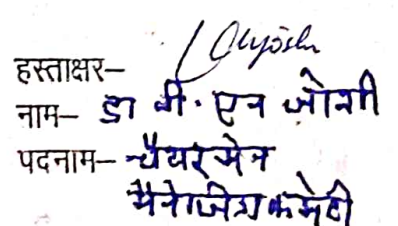 हस्ताक्षर–
नाम– डा बी. एन जोशी
पदनाम– चैयरमेन
मैनेजिंग कमेटी